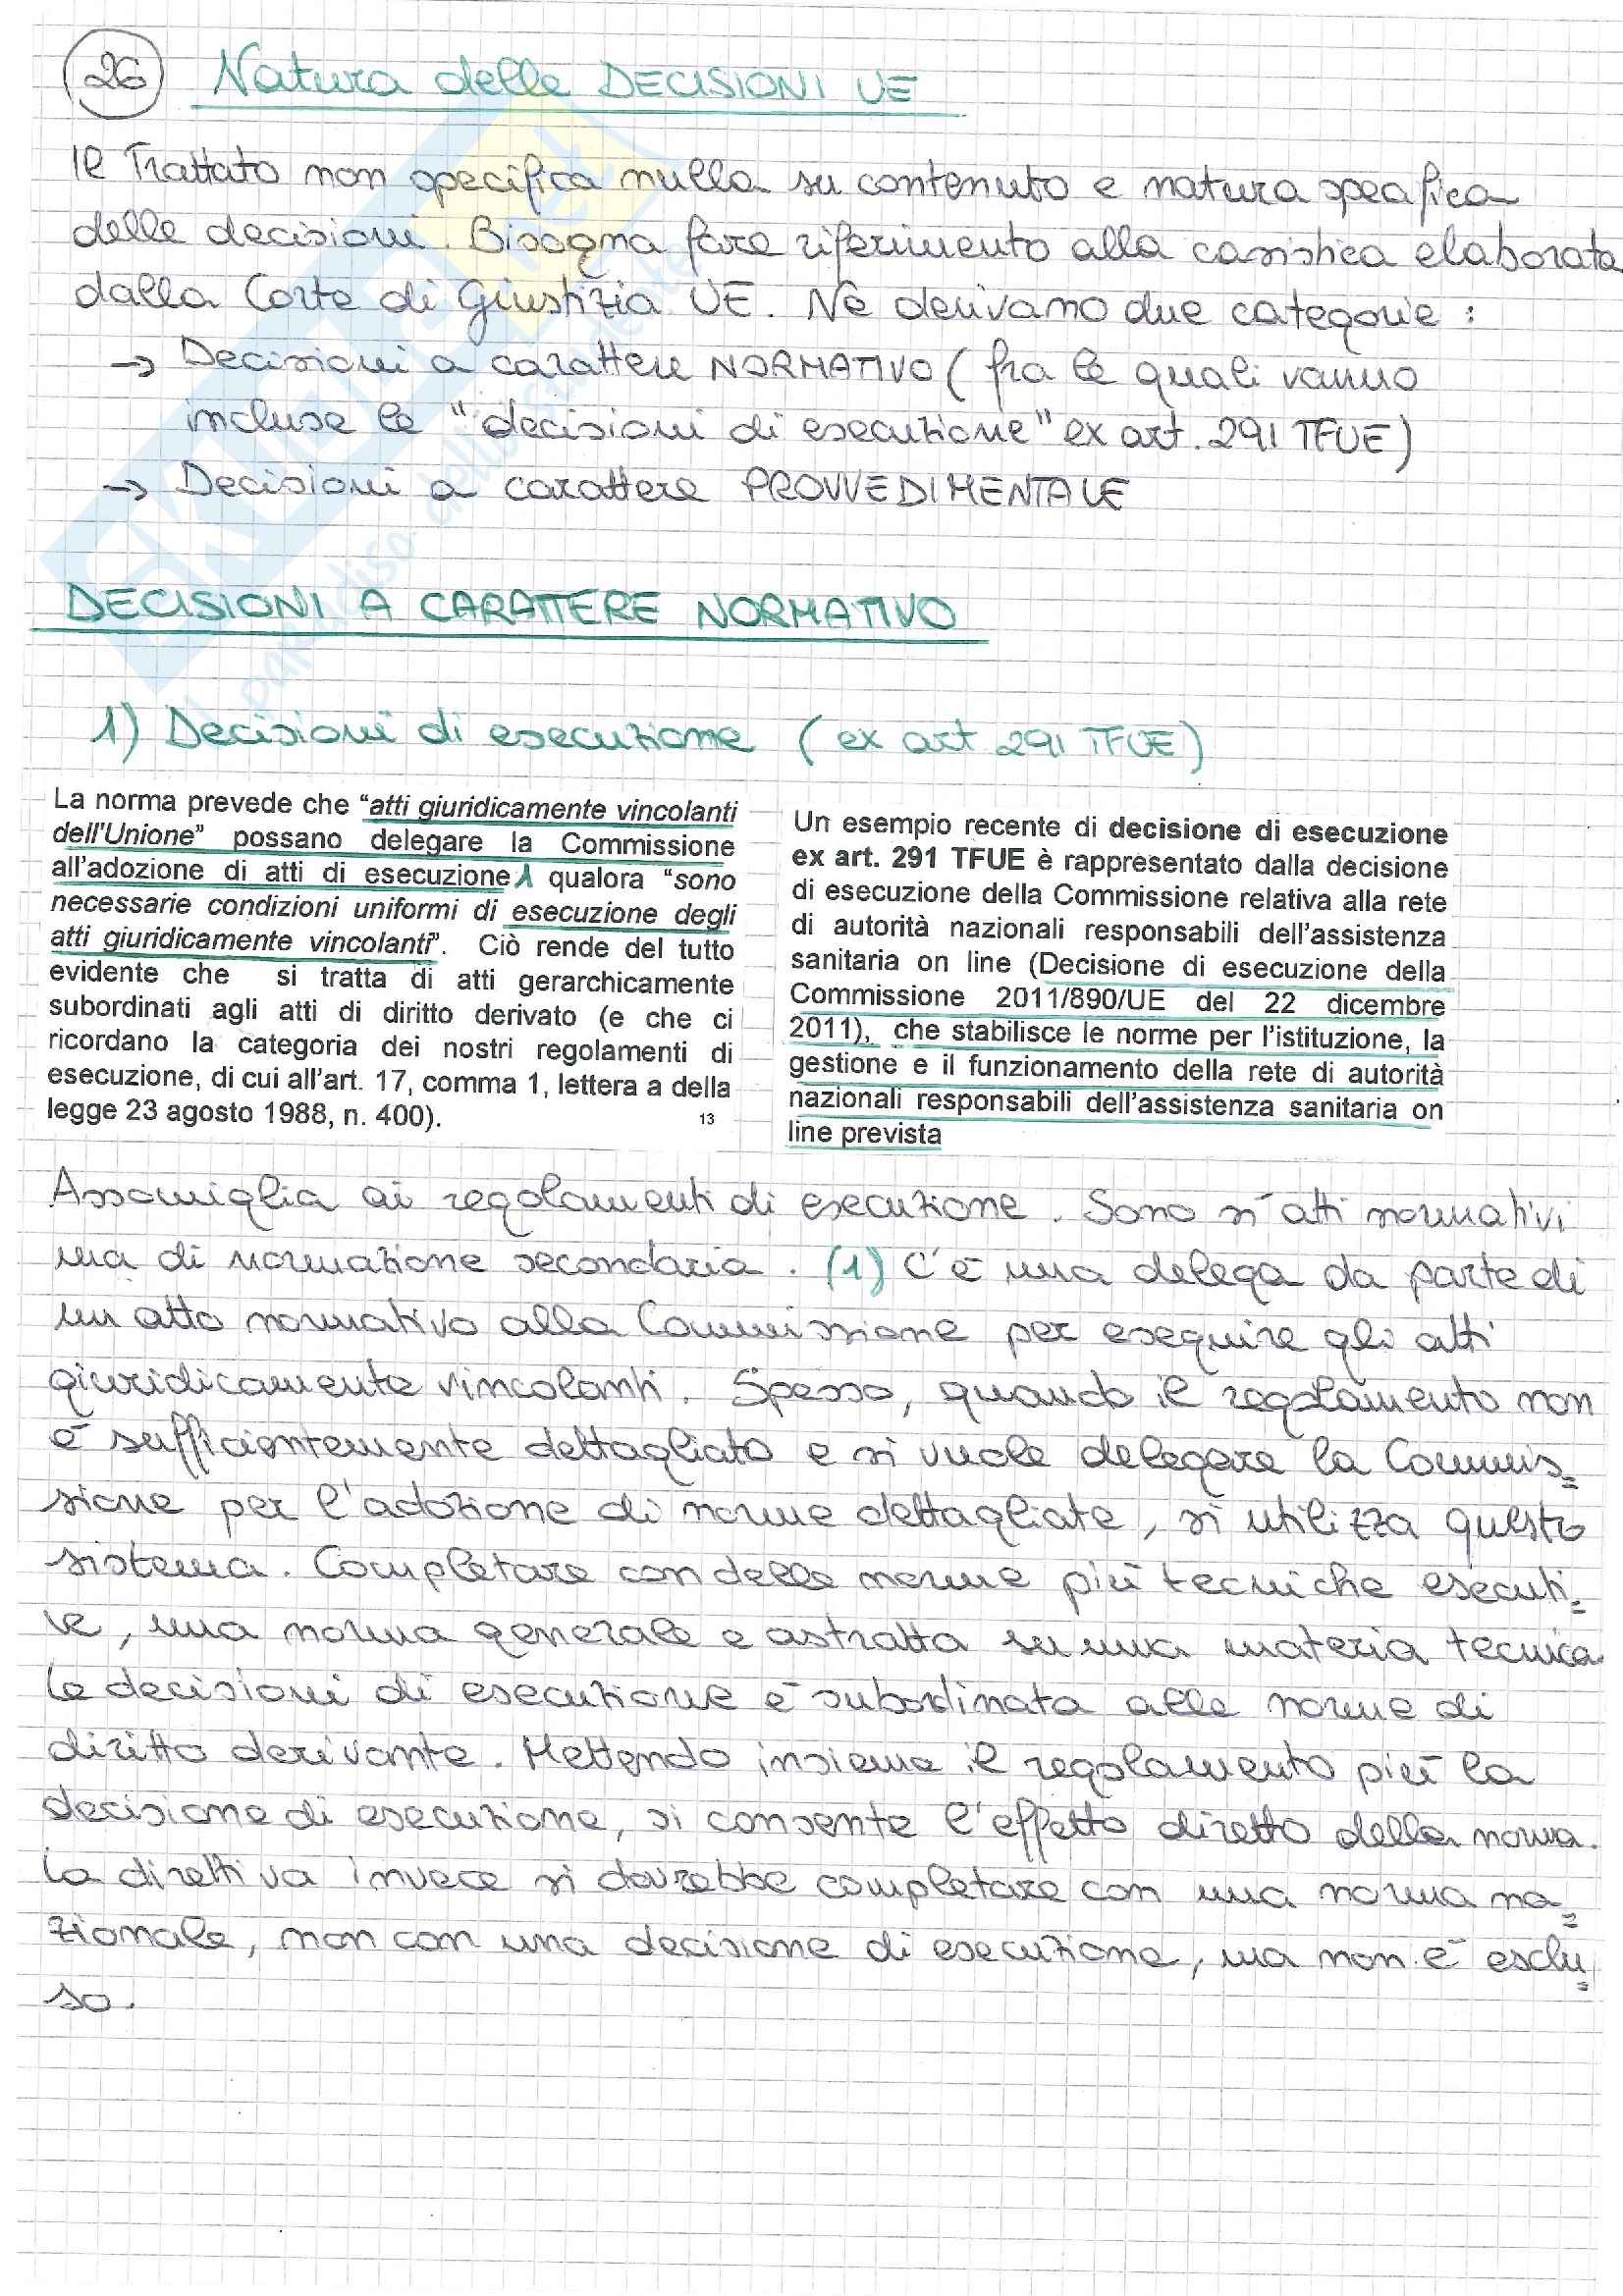 26 Natura delle DECISIONI UE
Il Trattato non specifica nulla su contenuto e natura specifica
delle decisioni. Bisogna fare riferimento alla casistica elaborata
dalla Corte di Giustizia UE. Ne derivano due categorie :
→ Decisioni a carattere NORMATIVO ( fra le quali vanno
incluse le "decisioni di esecuzione" ex art. 291 TFUE)
→ Decisioni a carattere PROVVEDIMENTALE
DECISIONI A CARATTERE NORMATIVO
1) Decisioni di esecuzione ( ex art 291 TFUE)
La norma prevede che “atti giuridicamente vincolanti
dell'Unione” possano delegare la Commissione
all’adozione di atti di esecuzione, 1 qualora “sono
necessarie condizioni uniformi di esecuzione degli
atti giuridicamente vincolanti”. Ciò rende del tutto
evidente che si tratta di atti gerarchicamente
subordinati agli atti di diritto derivato (e che ci
ricordano la categoria dei nostri regolamenti di
esecuzione, di cui all’art. 17, comma 1, lettera a della
legge 23 agosto 1988, n. 400).
13
Un esempio recente di decisione di esecuzione
ex art. 291 TFUE è rappresentato dalla decisione
di esecuzione della Commissione relativa alla rete
di autorità nazionali responsabili dell’assistenza
sanitaria on line (Decisione di esecuzione della
Commissione 2011/890/UE del 22 dicembre
2011), che stabilisce le norme per l’istituzione, la
gestione e il funzionamento della rete di autorità
nazionali responsabili dell’assistenza sanitaria on
line prevista
Assomiglia ai regolamenti di esecuzione. Sono sì atti normativi
ma di normazione secondaria. (1) C'è una delega da parte di
un atto normativo alla Commissione per eseguire gli atti
giuridicamente vincolanti. Spesso, quando il regolamento non
è sufficientemente dettagliato e si vuole delegare la Commis=
sione per l'adozione di norme dettagliate, si utilizza questo
sistema. Completare con delle norme più tecniche esecuti=
ve, una norma generale e astratta su una materia tecnica.
Le decisioni di esecuzione è subordinata alle norme di
diritto derivante. Mettendo insieme il regolamento più la
decisione di esecuzione, si consente l'effetto diretto della norma.
La direttiva invece si dovrebbe completare con una norma na=
zionale, non con una decisione di esecuzione, ma non è esclu=
so.